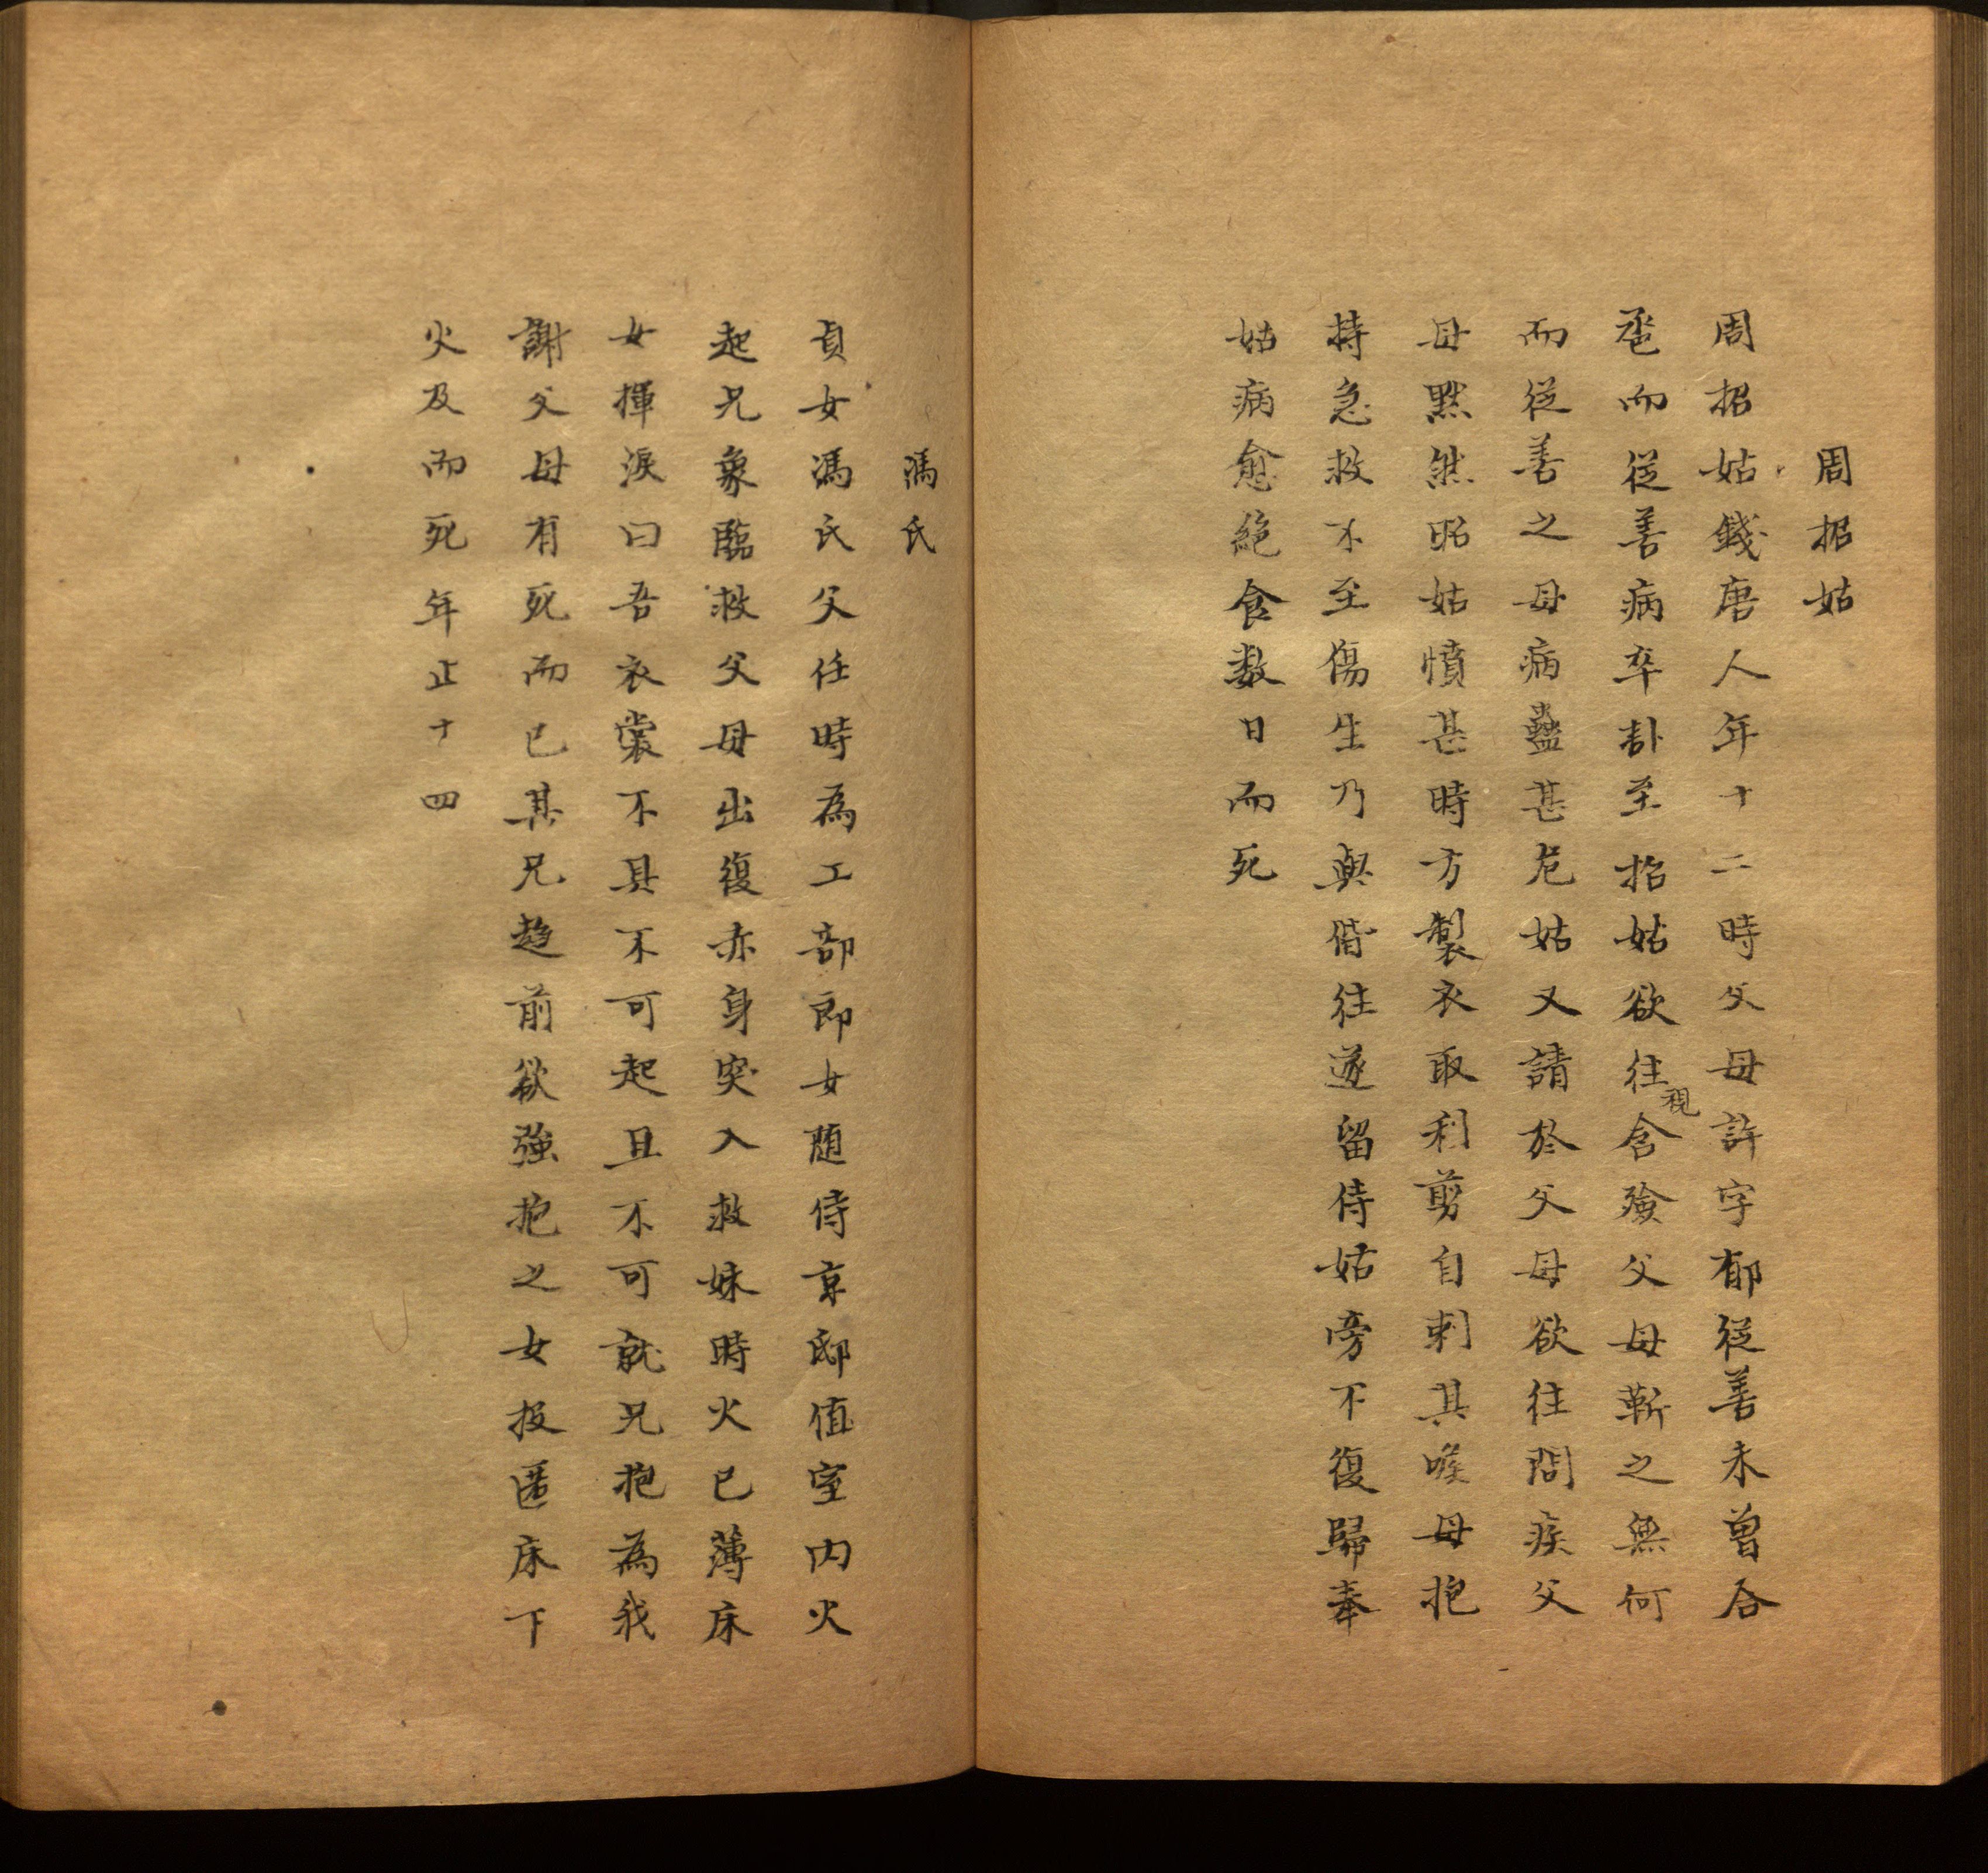 周招姑
周招姑錢唐人年十二時父母許字郁從善未曾合
巹而從善病卒訃至招姑欲往視含殮父母靳之無何
而從善之母病蠱甚危姑又請於父母欲往問疾父
母默然昭姑憤甚時方製衣取利剪自刺其喉母抱
持急救不至傷生乃與偕往遂留侍姑旁不復歸奉
姑病愈絶食数日而死
馮氏
貞女馮氏父任時為工部郎女随侍京邸值室内火
起兄象臨救父母出復亦身突入救妹時火已薄床
女揮淚曰吾衣裳不具不可起且不可就兄抱為我
謝父母有死而已其兄趋前欲強抱之女投匿床下
火及而死年止十四